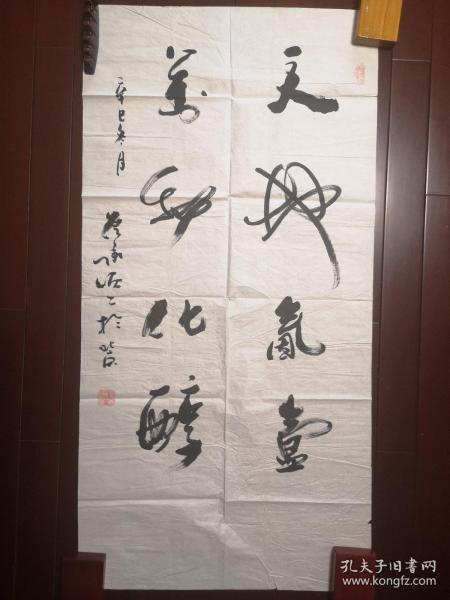 天地氤氲
万物化醇
辛巳冬月
孔夫子旧书网
www.kongfz.com